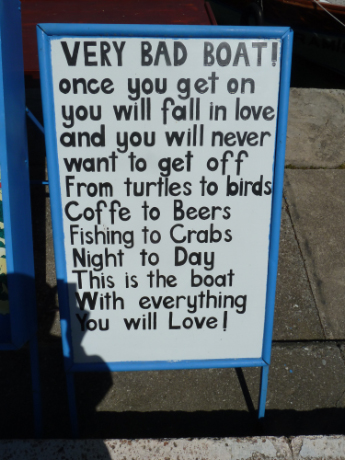 VERY BAD BOAT!
once you get on
you will fall in love
and you will never
want to get off
From turtles to birds
Coffe to Beers
Fishing to Crabs
Night to Day
This is the boat
With everything
You will Love!